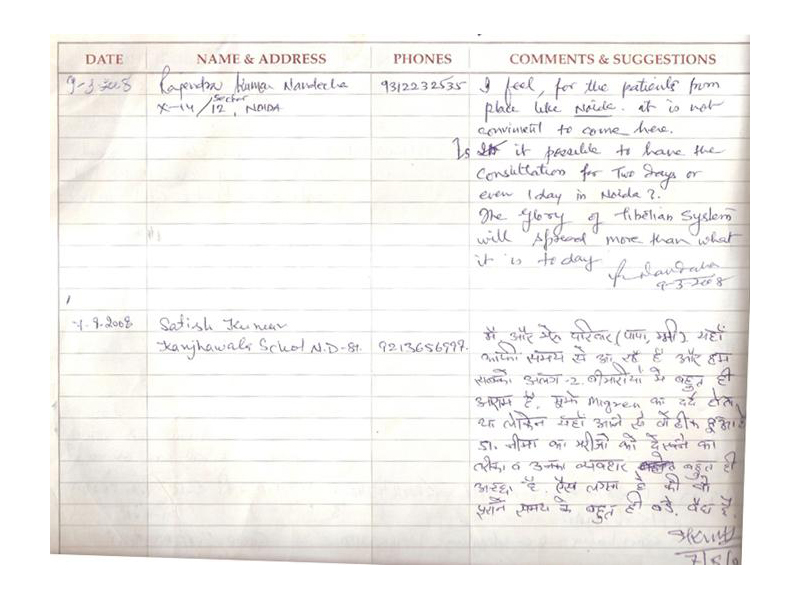 DATE NAME & ADDRESS PHONES COMMENTS & SUGGESTIONS
9-3-2008 Rajendra Kumar Nandecha 9312232535 I feel, for the patients from
X-14/Sector 12, NOIDA place like Noida. it is not
convinient to come here.
Is it possible to have the
Consultation for Two days or
even 1 day in Noida?
The Glory of Tibetian System
will spread more than what
it is today
9-3-2008
9.2008 Satish Kumar मैं और मेरा परिवार (पापा, मम्मी) यहाँ
Kanjhawala School N.D-81. 9213656997. काफी समय से आ रहे हैं और हम
सबको अलग-2 बीमारीयों में बहुत ही
आराम है. मुझे Migren का दर्द होता
था लेकिन यहाँ आने से वो ठीक हुआ है
डा. नीमा का मरीजो को देखने का
तरीका व उनका व्यवहार बहुत ही
अच्छा है. ऐसा लगता है की वो
पुराने समय के बहुत ही बडे. वैद्य है.